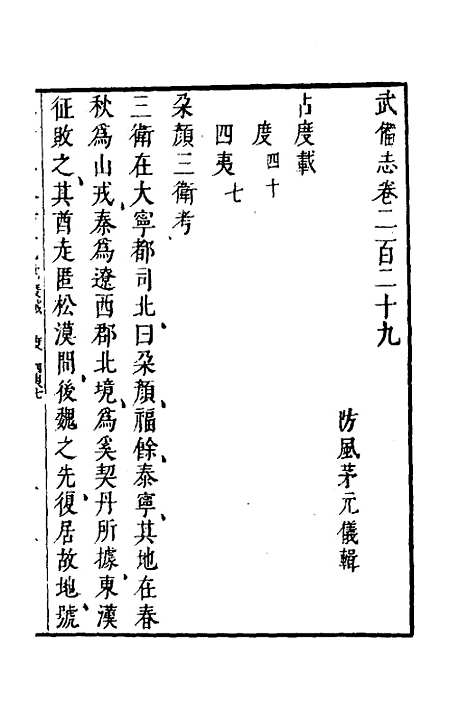 武備志卷二百二十九
防風茅元儀輯
占度載
度 四十
四夷 七
朵顏三衛考
三衛在大寧都司北曰朵顏福餘泰寧其地在春
秋為山戎秦為遼西郡北境為奚契丹所據東漢
征敗之其酋走匿松漠間後魏之先復居故地號